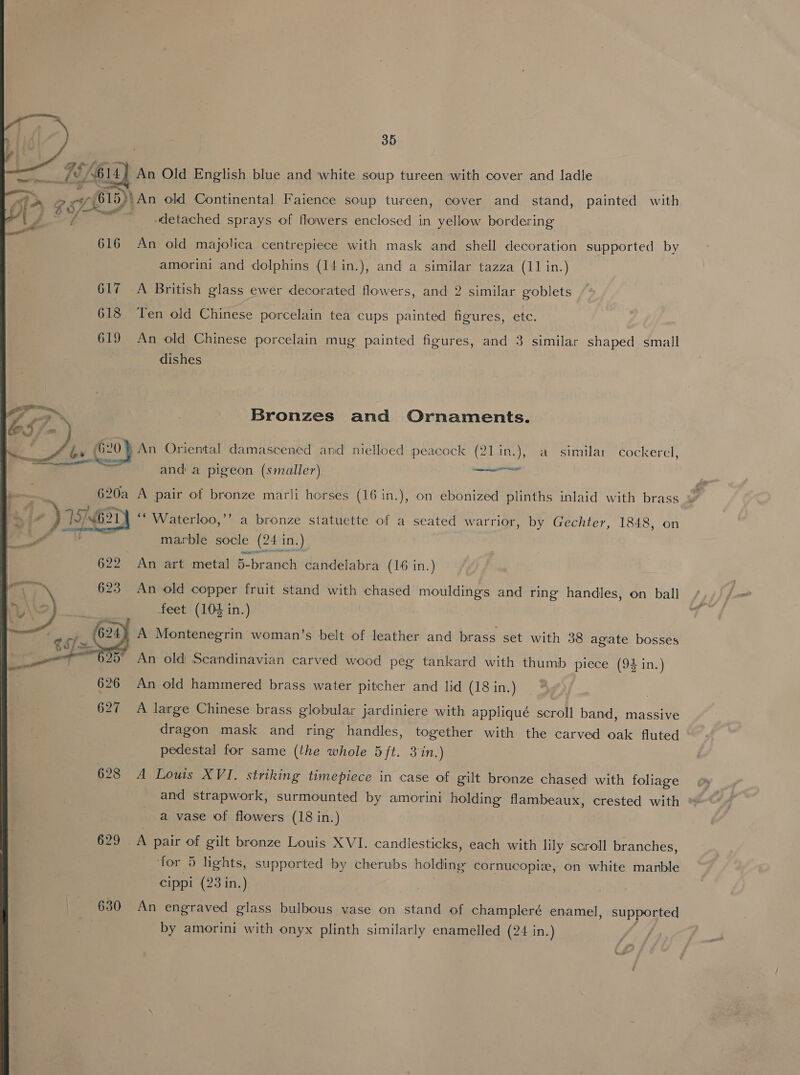 35
614 An Old English blue and white soup tureen with cover and ladle
615 An old Continental Faience soup tureen, cover and stand, painted with
detached sprays of flowers enclosed in yellow bordering
616 An old majolica centrepiece with mask and shell decoration supported by
amorini and dolphins (14 in.), and a similar tazza (11 in.)
617 A British glass ewer decorated flowers, and 2 similar goblets
618 Ten old Chinese porcelain tea cups painted figures, etc.
619 An old Chinese porcelain mug painted figures, and 3 similar shaped small
dishes
Bronzes and Ornaments.
620 An Oriental damascened and nielloed peacock (21 in.), a similar cockerel,
and a pigeon (smaller)
620a A pair of bronze marli horses (16 in.), on ebonized plinths inlaid with brass
15/ 621 “Waterloo,” a bronze statuette of a seated warrior, by Gechter, 1848, on
marble socle (24 in.)
622 An art metal 5-branch candelabra (16 in.)
623 An old copper fruit stand with chased mouldings and ring handles, on ball
feet (10½ in.)
624 A Montenegrin woman’s belt of leather and brass set with 38 agate bosses
625 An old Scandinavian carved wood peg tankard with thumb piece (9½ in.)
626 An old hammered brass water pitcher and lid (18 in.)
627 A large Chinese brass globular jardiniere with appliqué scroll band, massive
dragon mask and ring handles, together with the carved oak fluted
pedestal for same (the whole 5 ft. 3 in.)
628 A Louis XVI. striking timepiece in case of gilt bronze chased with foliage
and strapwork, surmounted by amorini holding flambeaux, crested with
a vase of flowers (18 in.)
629 A pair of gilt bronze Louis XVI. candlesticks, each with lily scroll branches,
for 5 lights, supported by cherubs holding cornucopiæ, on white marble
cippi (23 in.)
630 An engraved glass bulbous vase on stand of champleré enamel, supported
by amorini with onyx plinth similarly enamelled (24 in.)